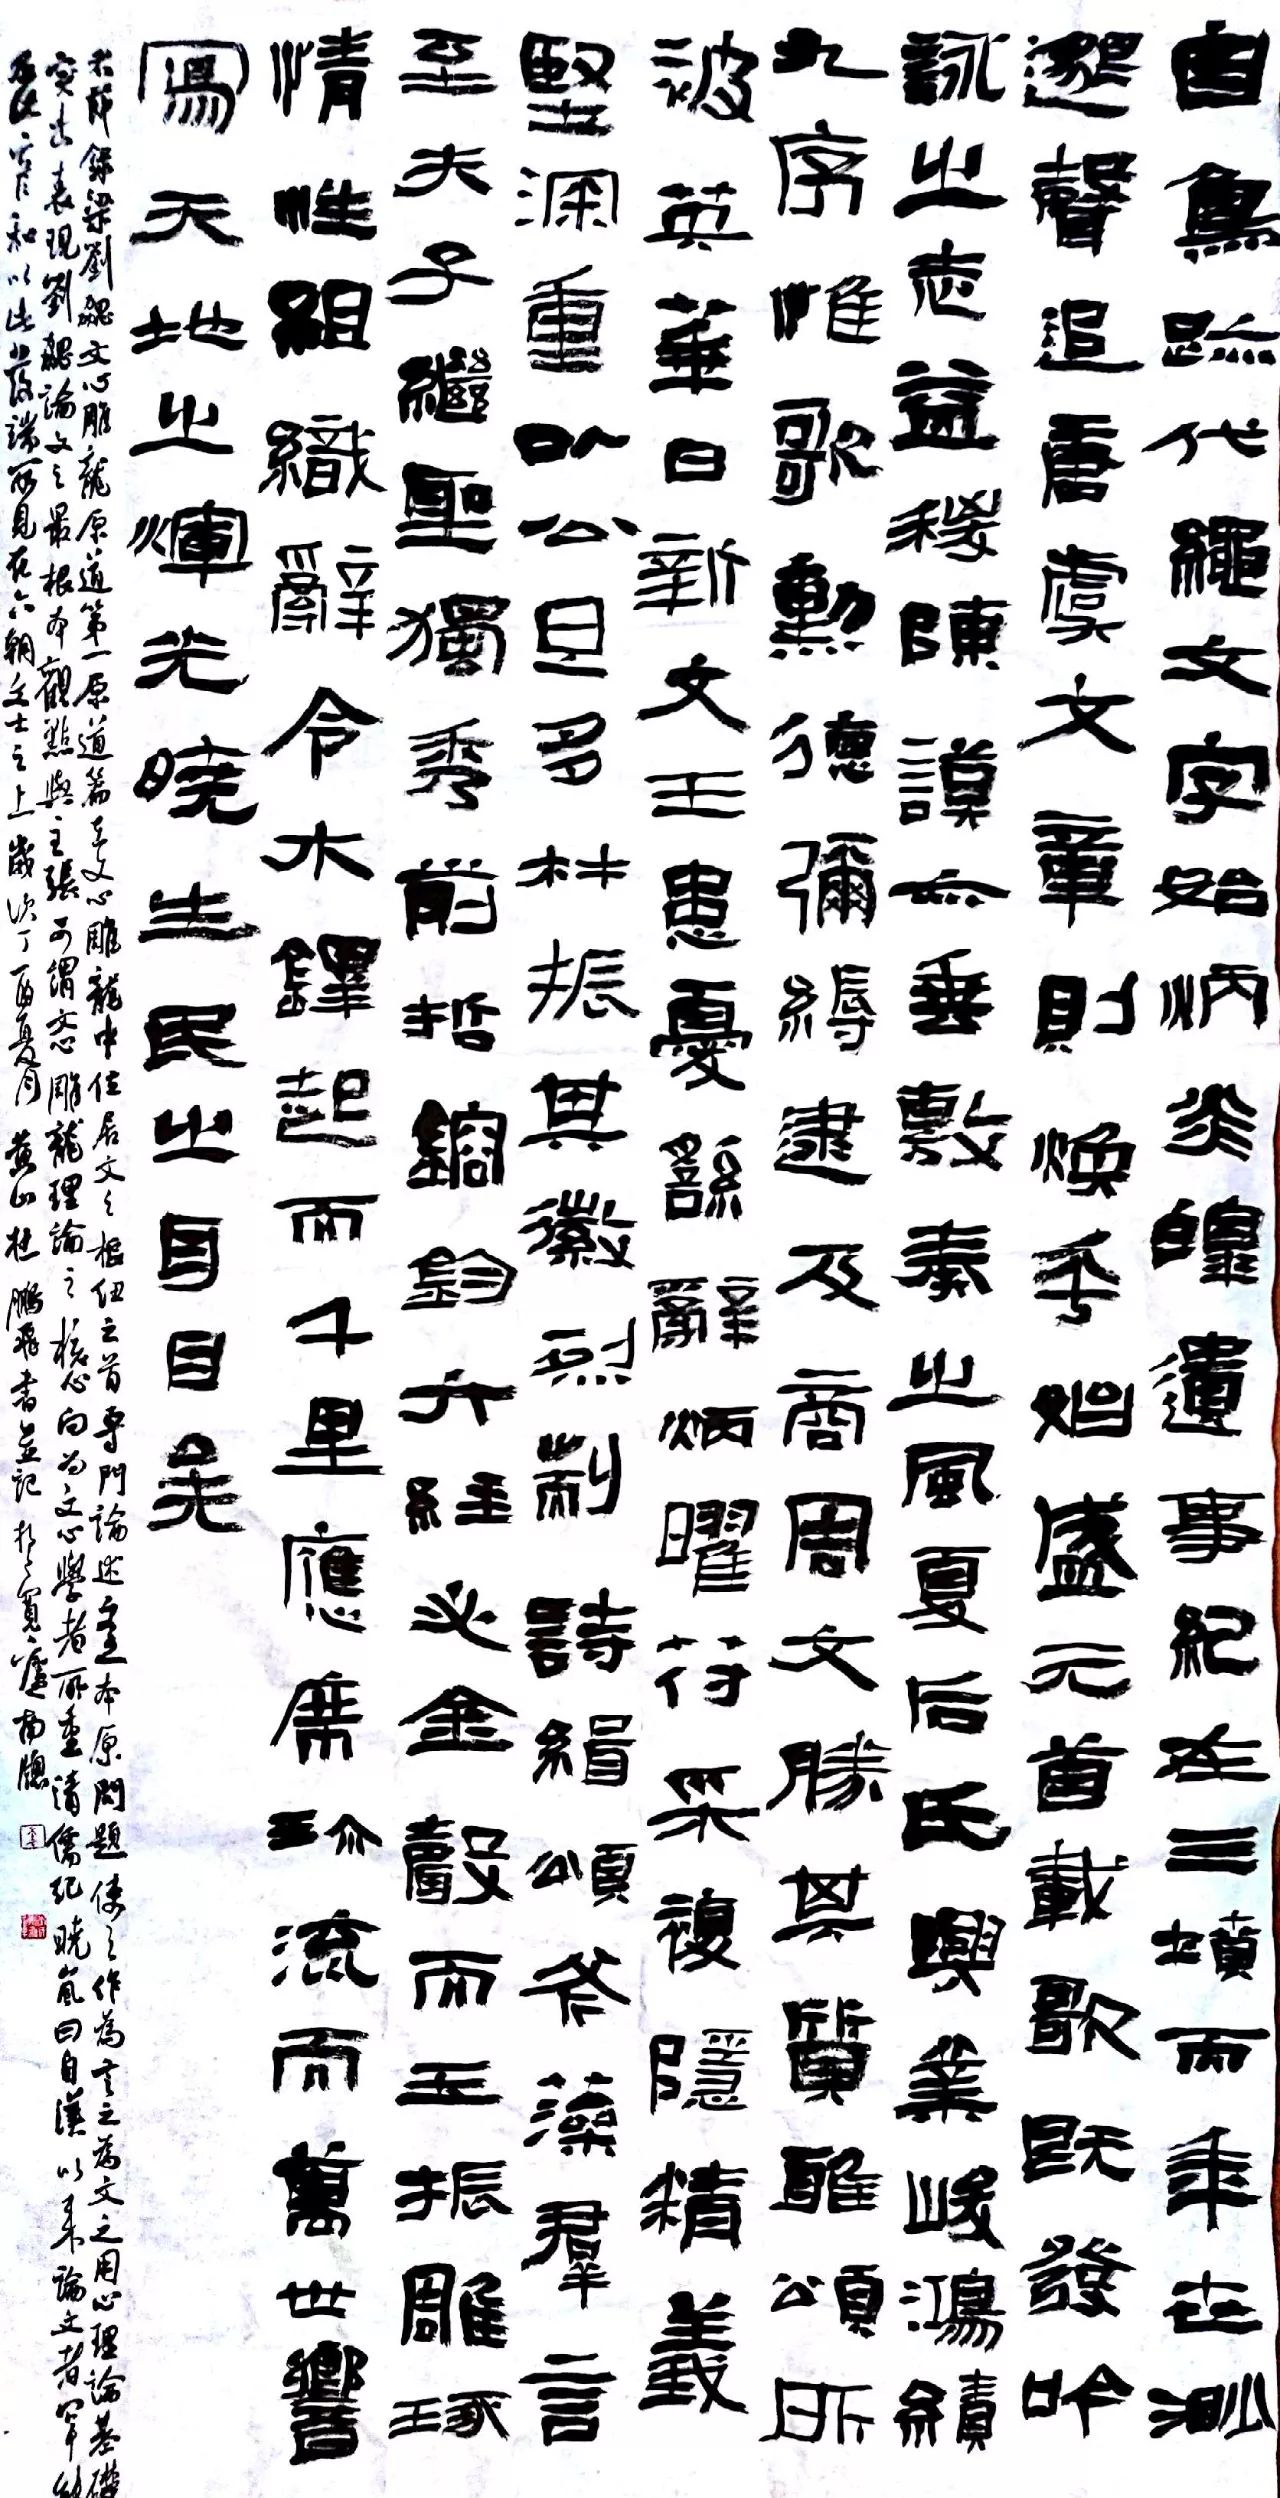 自鳥跡代繩文字始炳炎皞遺事紀在三墳而年世渺
邈聲追唐虞文章則煥乎始盛元首載歌既發吟
詠之志益稷陳謨亦垂敷奏之風夏后氏興業峻鴻績
九序惟歌勳德彌縟逮及商周文勝其質雅頌所
被英華日新文王患憂繇辭炳曜符采複隱精義
堅深重以公旦多材振其徽烈剬詩緝頌斧藻羣言
至夫子繼聖獨秀前哲鎔鈞六經必金聲而玉振雕琢
情性組織辭令木鐸起而千里應席珍流而萬世響
寫天地之輝光曉生民之耳目矣
右節錄梁劉勰文心雕龍原道第一原道篇在文心雕龍中位居文之樞紐之首專門論述本原問題使之作為言之為文之用心理論基礎
突出表現劉勰論文之最根本觀點與主張可謂文心雕龍理論之核心向為文心學者所重清儒紀曉嵐曰自漢以來論文者罕能
及此彥和以此發端所見在六朝文士之上歲次丁酉夏月黃山杜鵬飛書並記於寬廬南牕